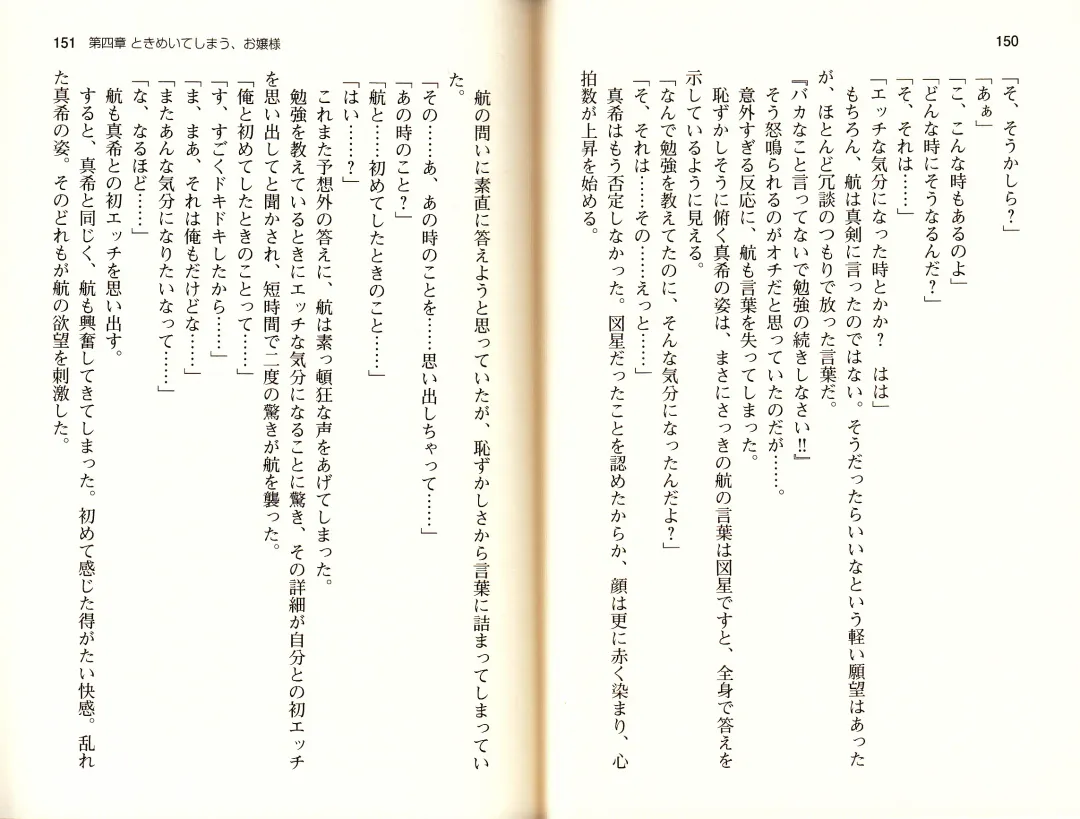 150
「そ、そうかしら?」
「あぁ」
「こ、こんな時もあるのよ」
「どんな時にそうなるんだ?」
「そ、それは……」
「エッチな気分になった時とかか? はは」
もちろん、航は真剣に言ったのではない。そうだったらいいなという軽い願望はあった
が、ほとんど冗談のつもりで放った言葉だ。
『バカなこと言ってないで勉強の続きしなさい!!』
そう怒鳴られるのがオチだと思っていたのだが……。
意外すぎる反応に、航も言葉を失ってしまった。
恥ずかしそうに俯く真希の姿は、まさにさっきの航の言葉は図星ですと、全身で答えを
示しているように見える。
「なんで勉強を教えてたのに、そんな気分になったんだよ?」
「そ、それは……その……えっと……」
真希はもう否定しなかった。図星だったことを認めたからか、顔は更に赤く染まり、心
拍数が上昇を始める。
151 第四章 ときめいてしまう、お嬢様
航の問いに素直に答えようと思っていたが、恥ずかしさから言葉に詰まってしまってい
た。
「その……あ、あの時のことを……思い出しちゃって……」
「あの時のこと?」
「航と……初めてしたときのこと……」
「はい……?」
これまた予想外の答えに、航は素っ頓狂な声をあげてしまった。
勉強を教えているときにエッチな気分になることに驚き、その詳細が自分との初エッチ
を思い出してと聞かされ、短時間で二度の驚きが航を襲った。
「俺と初めてしたときのことって……」
「す、すごくドキドキしたから……」
「ま、まあ、それは俺もだけどな……」
「またあんな気分になりたいなって……」
「な、なるほど……」
航も真希との初エッチを思い出す。
すると、真希と同じく、航も興奮してきてしまった。初めて感じた得がたい快感。乱れ
た真希の姿。そのどれもが航の欲望を刺激した。